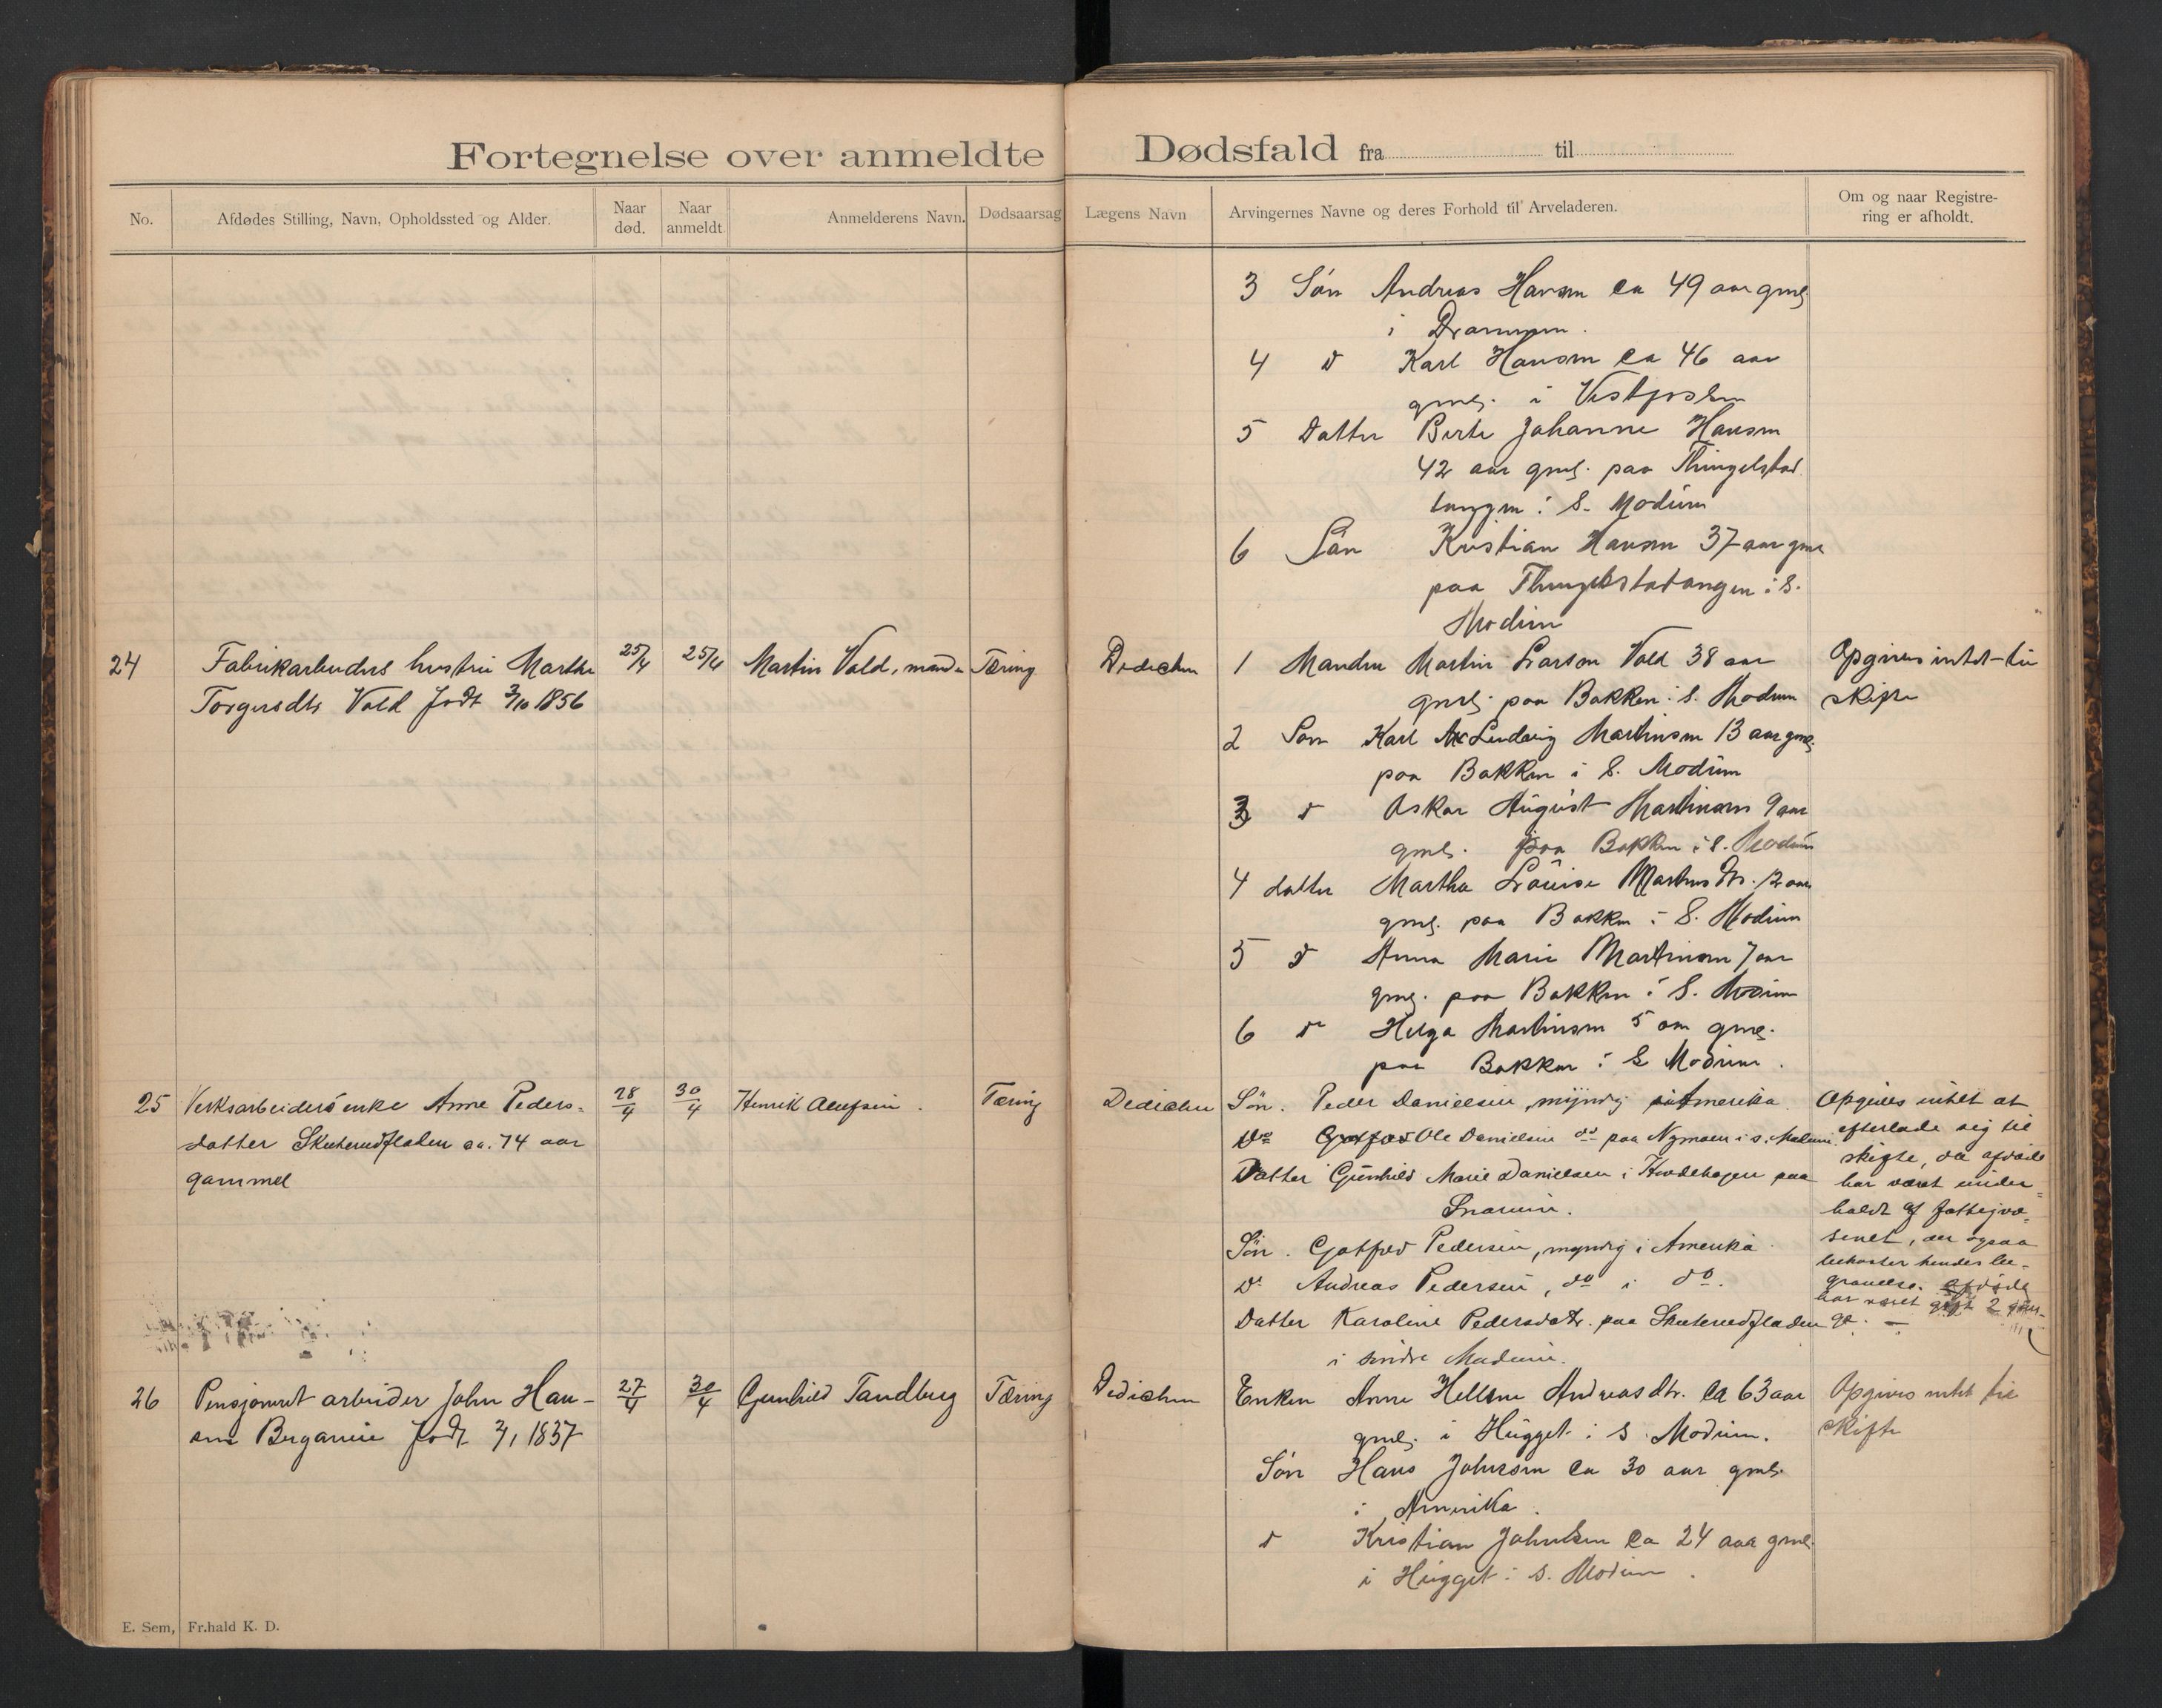 Fortegnelse over anmeldte Dødsfald fra til
No.
Afdødes Stilling, Navn, Opholdssted og Alder.
Naar død.
Naar anmeldt
Anmelderens Navn.
Dødsaarsag
Lægens Navn
Arvingernes Navne og deres Forhold til Arveladeren.
Om og naar Registre-
ring er afholdt.
3 Søn Andreas Hansen ca 49 aar gml.
i Drammen.
4 d Karl Hansen ca 46 aar
gml. i Vestfossen
5 Datter Berte Johanne Hansen
42 aar gml. paa Thingelstad
tangen i S. Modum
6 Søn Kristian Hansen 37 aar gml
paa Thingelstatangen i S.
Modum
24 Fabrikarbeiders hustru Marthe
Torgersdtr Vold født 3/10 1856
25/4
25/4
Martin Vold, mand
Tæring
Dedichen
1 Manden Martin Larsen Vold 38 aar
gml. paa Bakken i S. Modum
2 Søn Karl Ludvig Martinsen 13 aar gml.
paa Bakken i S. Modum
3 d Oskar August Martinsen 9 aar
gml. paa Bakken i S. Modum
4 datter Martha Lovise Martins Dtr. 12 aar
gml. paa Bakken i S. Modum
5 d Anna Marie Martinsen 7 aar
gml. paa Bakken i S. Modum
6 d Helga Martinsen 5 aar gml.
paa Bakken i S Modum.
Opgives intet til
skifte
25 Verksarbeidersenke Anne Peders-
datter Skuterudfladen ca. 74 aar
gammel
28/4
30/4
Henrik Olufsen.
Tæring
Dedichen
Søn. Peder Danielsen, myndig i Amerika
Do Ole Danielsen do paa Nymoen i s. Modum.
Datter Gunhild Marie Danielsen i Hvalehagen paa
Snarum.
Søn. Gotfred Pedersen, myndig i Amerika.
Do Andreas Pedersen, do i do.
Datter Karoline Pedersdatr. paa Skuterudfladen
i søndre Modum.
Opgives intet at
efterlade sig til
skifte, da afdøde
har været under-
holdt af fattigvæ-
senet, der ogsaa
bekoster hendes be-
gravelse. afdøde
har været gift 2 gan-
ge. —
26 Pensjoneret arbeider John Han-
sen Berganie født 3/1 1837
27/4
30/4
Gunhild Tandberg
Tæring
Dedichen
Enken Anne Hellene Andreasdtr. ca 63 aar
gml. i Hugget i S. Modum.
Søn Hans Johnsen ca 30 aar gml.
i Amerika.
d Kristian Johnsen ca 24 aar gml.
i Hugget i S. Modum.
Opgives intet til
skifte
E. Sem, Fr.hald K. D.